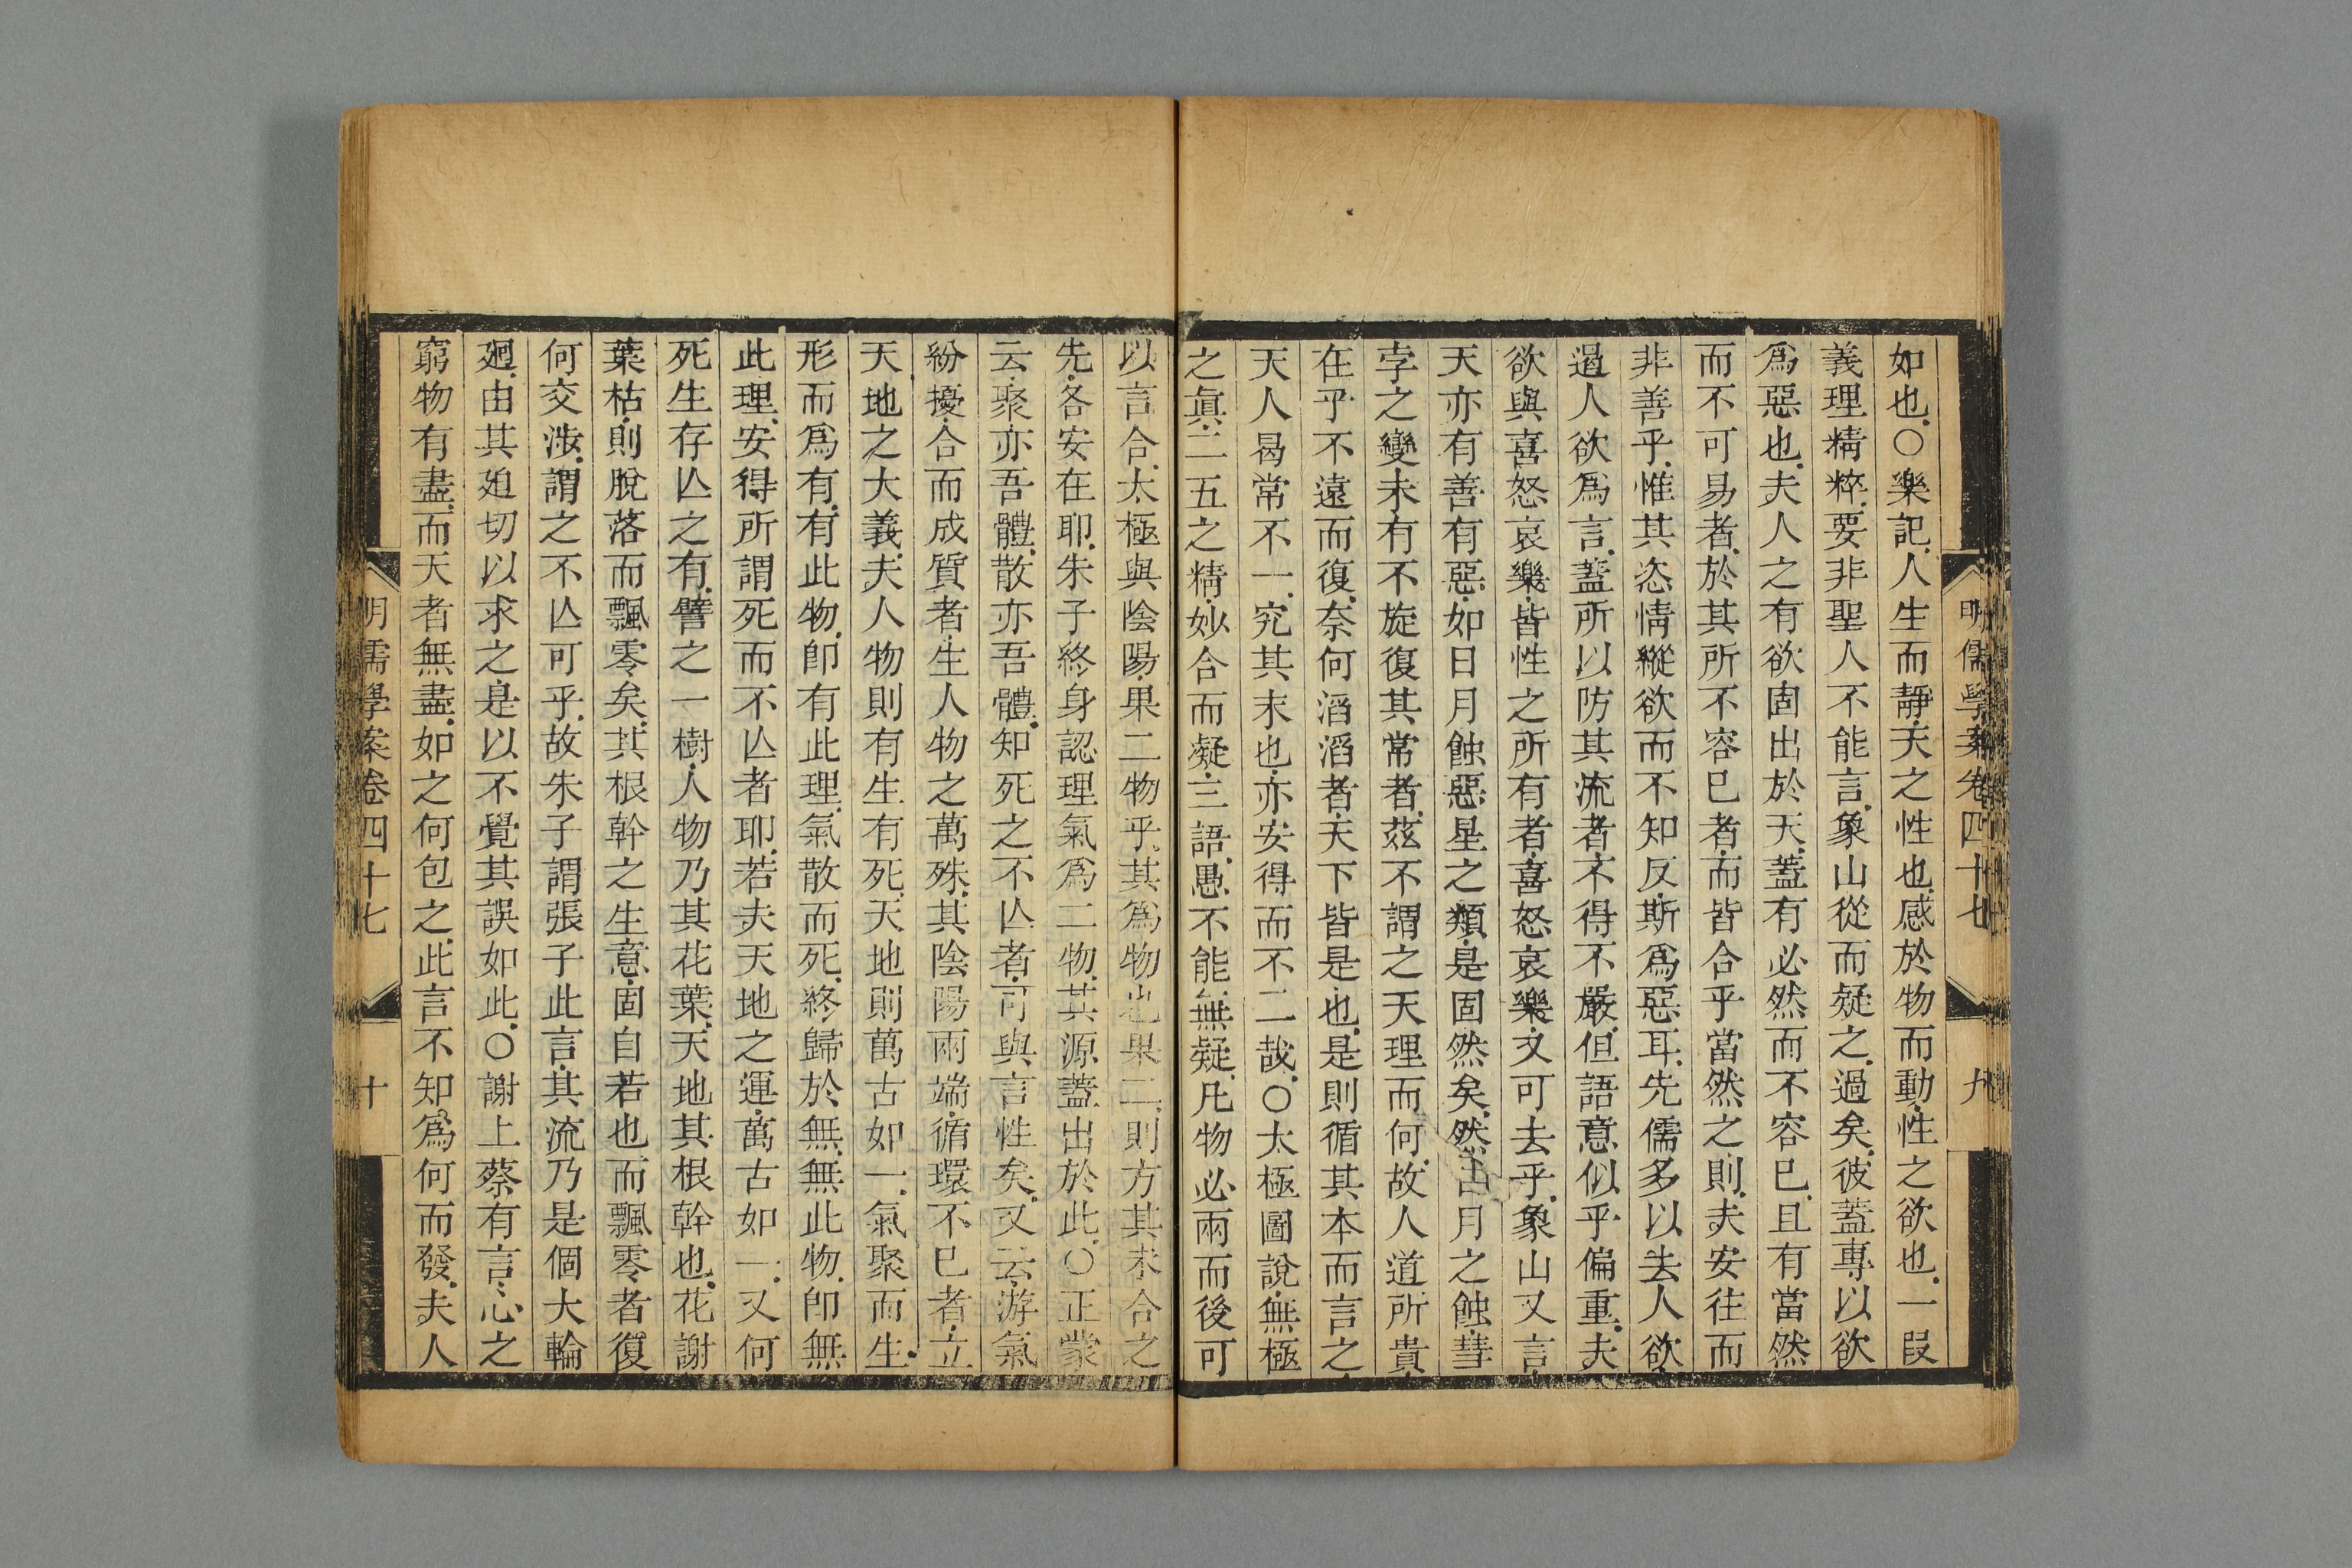 明儒學案卷四十七 九
如也○樂記人生而靜天之性也感於物而動性之欲也一段
義理精粹要非聖人不能言象山從而疑之過矣彼蓋專以欲
爲惡也夫人之有欲固出於天蓋有必然而不容已且有當然
而不可易者於其所不容已者而皆合乎當然之則夫安往而
非善乎惟其恣情縱欲而不知反斯爲惡耳先儒多以去人欲
遏人欲爲言蓋所以防其流者不得不嚴但語意似乎偏重夫
欲與喜怒哀樂皆性之所有者喜怒哀樂又可去乎象山又言
天亦有善有惡如日月蝕惡星之類是固然矣然日月之蝕彗
孛之變未有不旋復其常者茲不謂之天理而何故人道所貴
在乎不遠而復奈何滔滔者天下皆是也是則循其本而言之
天人曷常不一究其末也亦安得而不二哉○太極圖說無極
之眞二五之精妙合而凝三語愚不能無疑凡物必兩而後可
以言合太極與陰陽果二物乎其爲物也果二則方其未合之
先各安在耶朱子終身認理氣爲二物其源蓋出於此○正蒙
云聚亦吾體散亦吾體知死之不亾者可與言性矣又云游氣
紛擾合而成質者生人物之萬殊其陰陽兩端循環不已者立
天地之大義夫人物則有生有死天地則萬古如一氣聚而生
形而爲有有此物卽有此理氣散而死終歸於無無此物卽無
此理安得所謂死而不亾者耶若夫天地之運萬古如一又何
死生存亾之有譬之一樹人物乃其花葉天地其根幹也花謝
葉枯則脫落而飄零矣其根幹之生意固自若也而飄零者復
何交涉謂之不亾可乎故朱子謂張子此言其流乃是個大輪
廻由其廹切以求之是以不覺其誤如此○謝上蔡有言心之
窮物有盡而天者無盡如之何包之此言不知爲何而發夫人
明儒學案卷四十七 十